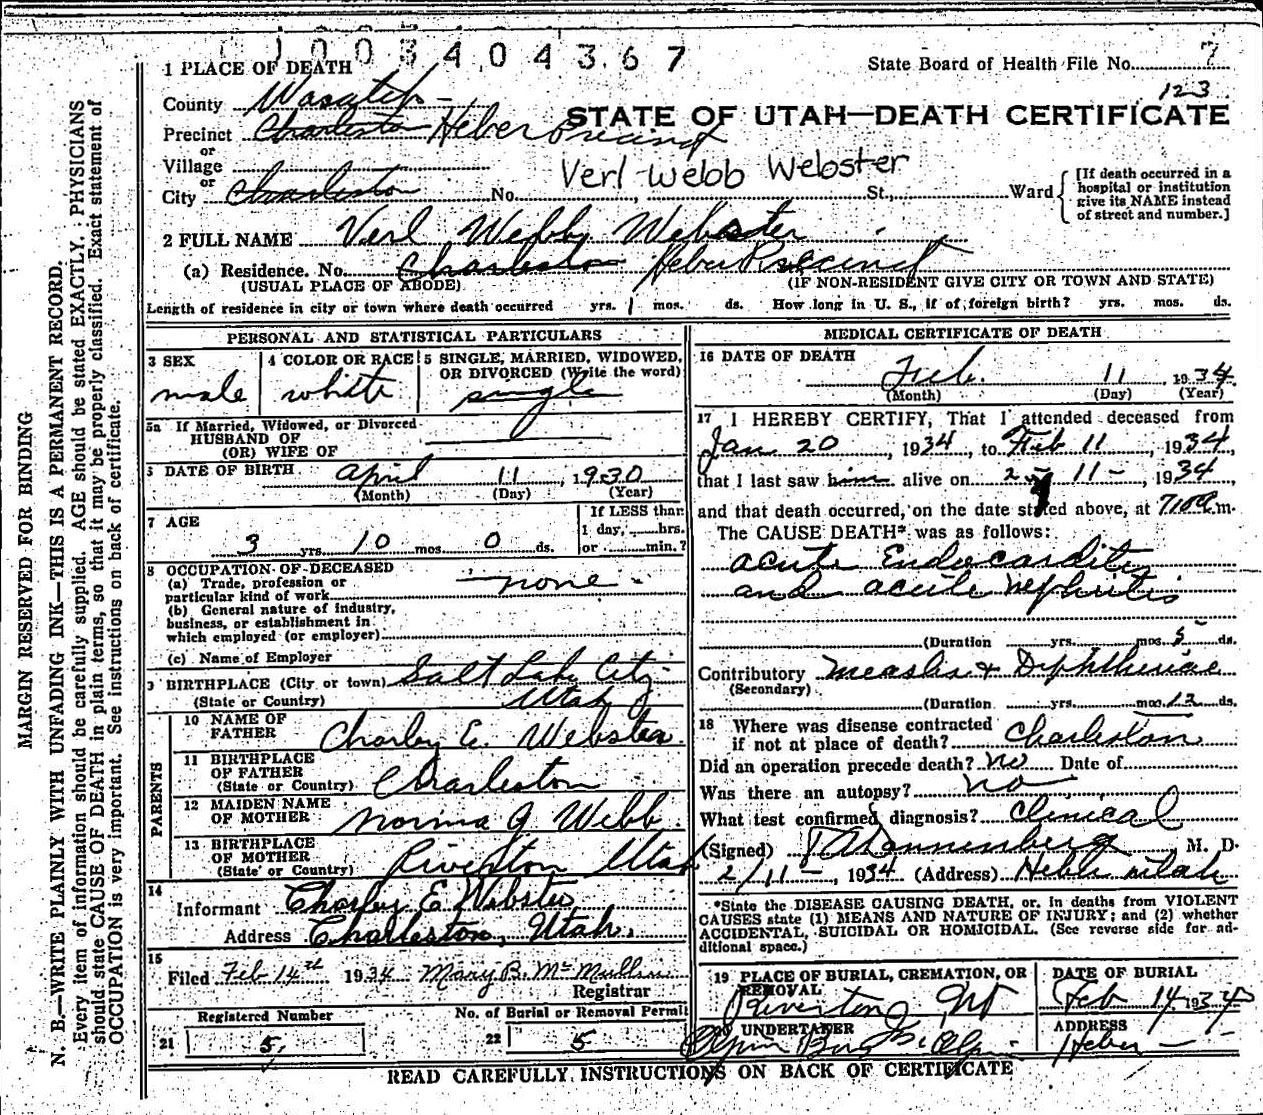 1003404367
1 PLACE OF DEATH
State Board of Health File No. 7
123
County Wasatch
STATE OF UTAH—DEATH CERTIFICATE
Precinct Charleston Heber Precinct
or
Village
or
City Charleston No. St., Ward
Verl Webb Webster
[If death occurred in a
hospital or institution
give its NAME instead
of street and number.]
2 FULL NAME Verl Webb Webster
(a) Residence. No. Charleston Heber Precinct
(USUAL PLACE OF ABODE) (IF NON-RESIDENT GIVE CITY OR TOWN AND STATE)
Length of residence in city or town where death occurred yrs. 1 mos. ds. How long in U. S., if of foreign birth? yrs. mos. ds.
PERSONAL AND STATISTICAL PARTICULARS
3 SEX
male
4 COLOR OR RACE
white
5 SINGLE, MARRIED, WIDOWED,
OR DIVORCED (Write the word)
single
5a If Married, Widowed, or Divorced
HUSBAND OF
(OR) WIFE OF
6 DATE OF BIRTH April 11, 1930
(Month) (Day) (Year)
7 AGE
3 yrs. 10 mos. 0 ds.
If LESS than
1 day, hrs.
or min.?
8 OCCUPATION OF DECEASED
(a) Trade, profession or
particular kind of work none
(b) General nature of industry,
business, or establishment in
which employed (or employer)
(c) Name of Employer
9 BIRTHPLACE (City or town) Salt Lake City
(State or Country) Utah
PARENTS
10 NAME OF
FATHER Charley E. Webster
11 BIRTHPLACE
OF FATHER
(State or Country) Charleston
12 MAIDEN NAME
OF MOTHER Norma J Webb
13 BIRTHPLACE
OF MOTHER
(State or Country) Riverton Utah
14
Informant Charley E Webster
Address Charleston, Utah.
15
Filed Feb 14th 1934 Mary B. McMullin
Registrar
Registered Number
21 5
No. of Burial or Removal Permit
22 5
MEDICAL CERTIFICATE OF DEATH
16 DATE OF DEATH
Feb. 11, 1934
(Month) (Day) (Year)
17 I HEREBY CERTIFY, That I attended deceased from
Jan 20, 1934, to Feb 11, 1934,
that I last saw him alive on 2-11-, 1934
and that death occurred, on the date stated above, at 7:00 a m.
The CAUSE DEATH* was as follows:
acute Endocarditis
and acute nephritis
(Duration yrs. mos. 5 ds.
Contributory Measles & Diphtheriae
(Secondary)
(Duration yrs. mos. 12 ds.
18 Where was disease contracted
if not at place of death? Charleston
Did an operation precede death? No Date of
Was there an autopsy? no
What test confirmed diagnosis? Clinical
(Signed) Dannenberg, M. D.
2/11-, 1934 (Address) Heber Utah
*State the DISEASE CAUSING DEATH, or, in deaths from VIOLENT
CAUSES state (1) MEANS AND NATURE OF INJURY; and (2) whether
ACCIDENTAL, SUICIDAL OR HOMICIDAL. (See reverse side for ad-
ditional space.)
19 PLACE OF BURIAL, CREMATION, OR
REMOVAL
Riverton, Ut
DATE OF BURIAL
Feb 14 1934
UNDERTAKER
ADDRESS
Heber
READ CAREFULLY, INSTRUCTIONS ON BACK OF CERTIFICATE
MARGIN RESERVED FOR BINDING
N. B.—WRITE PLAINLY WITH UNFADING INK—THIS IS A PERMANENT RECORD.
Every item of information should be carefully supplied. AGE should be stated EXACTLY. PHYSICIANS
should state CAUSE OF DEATH in plain terms, so that it may be properly classified. Exact statement of
OCCUPATION is very important. See instructions on back of certificate.